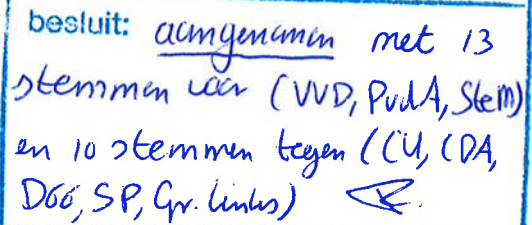 besluit: aangenomen met 13
stemmen voor (VVD, PvdA, Stem)
en 10 stemmen tegen (CU, CDA,
D66, SP, Gr. Links)